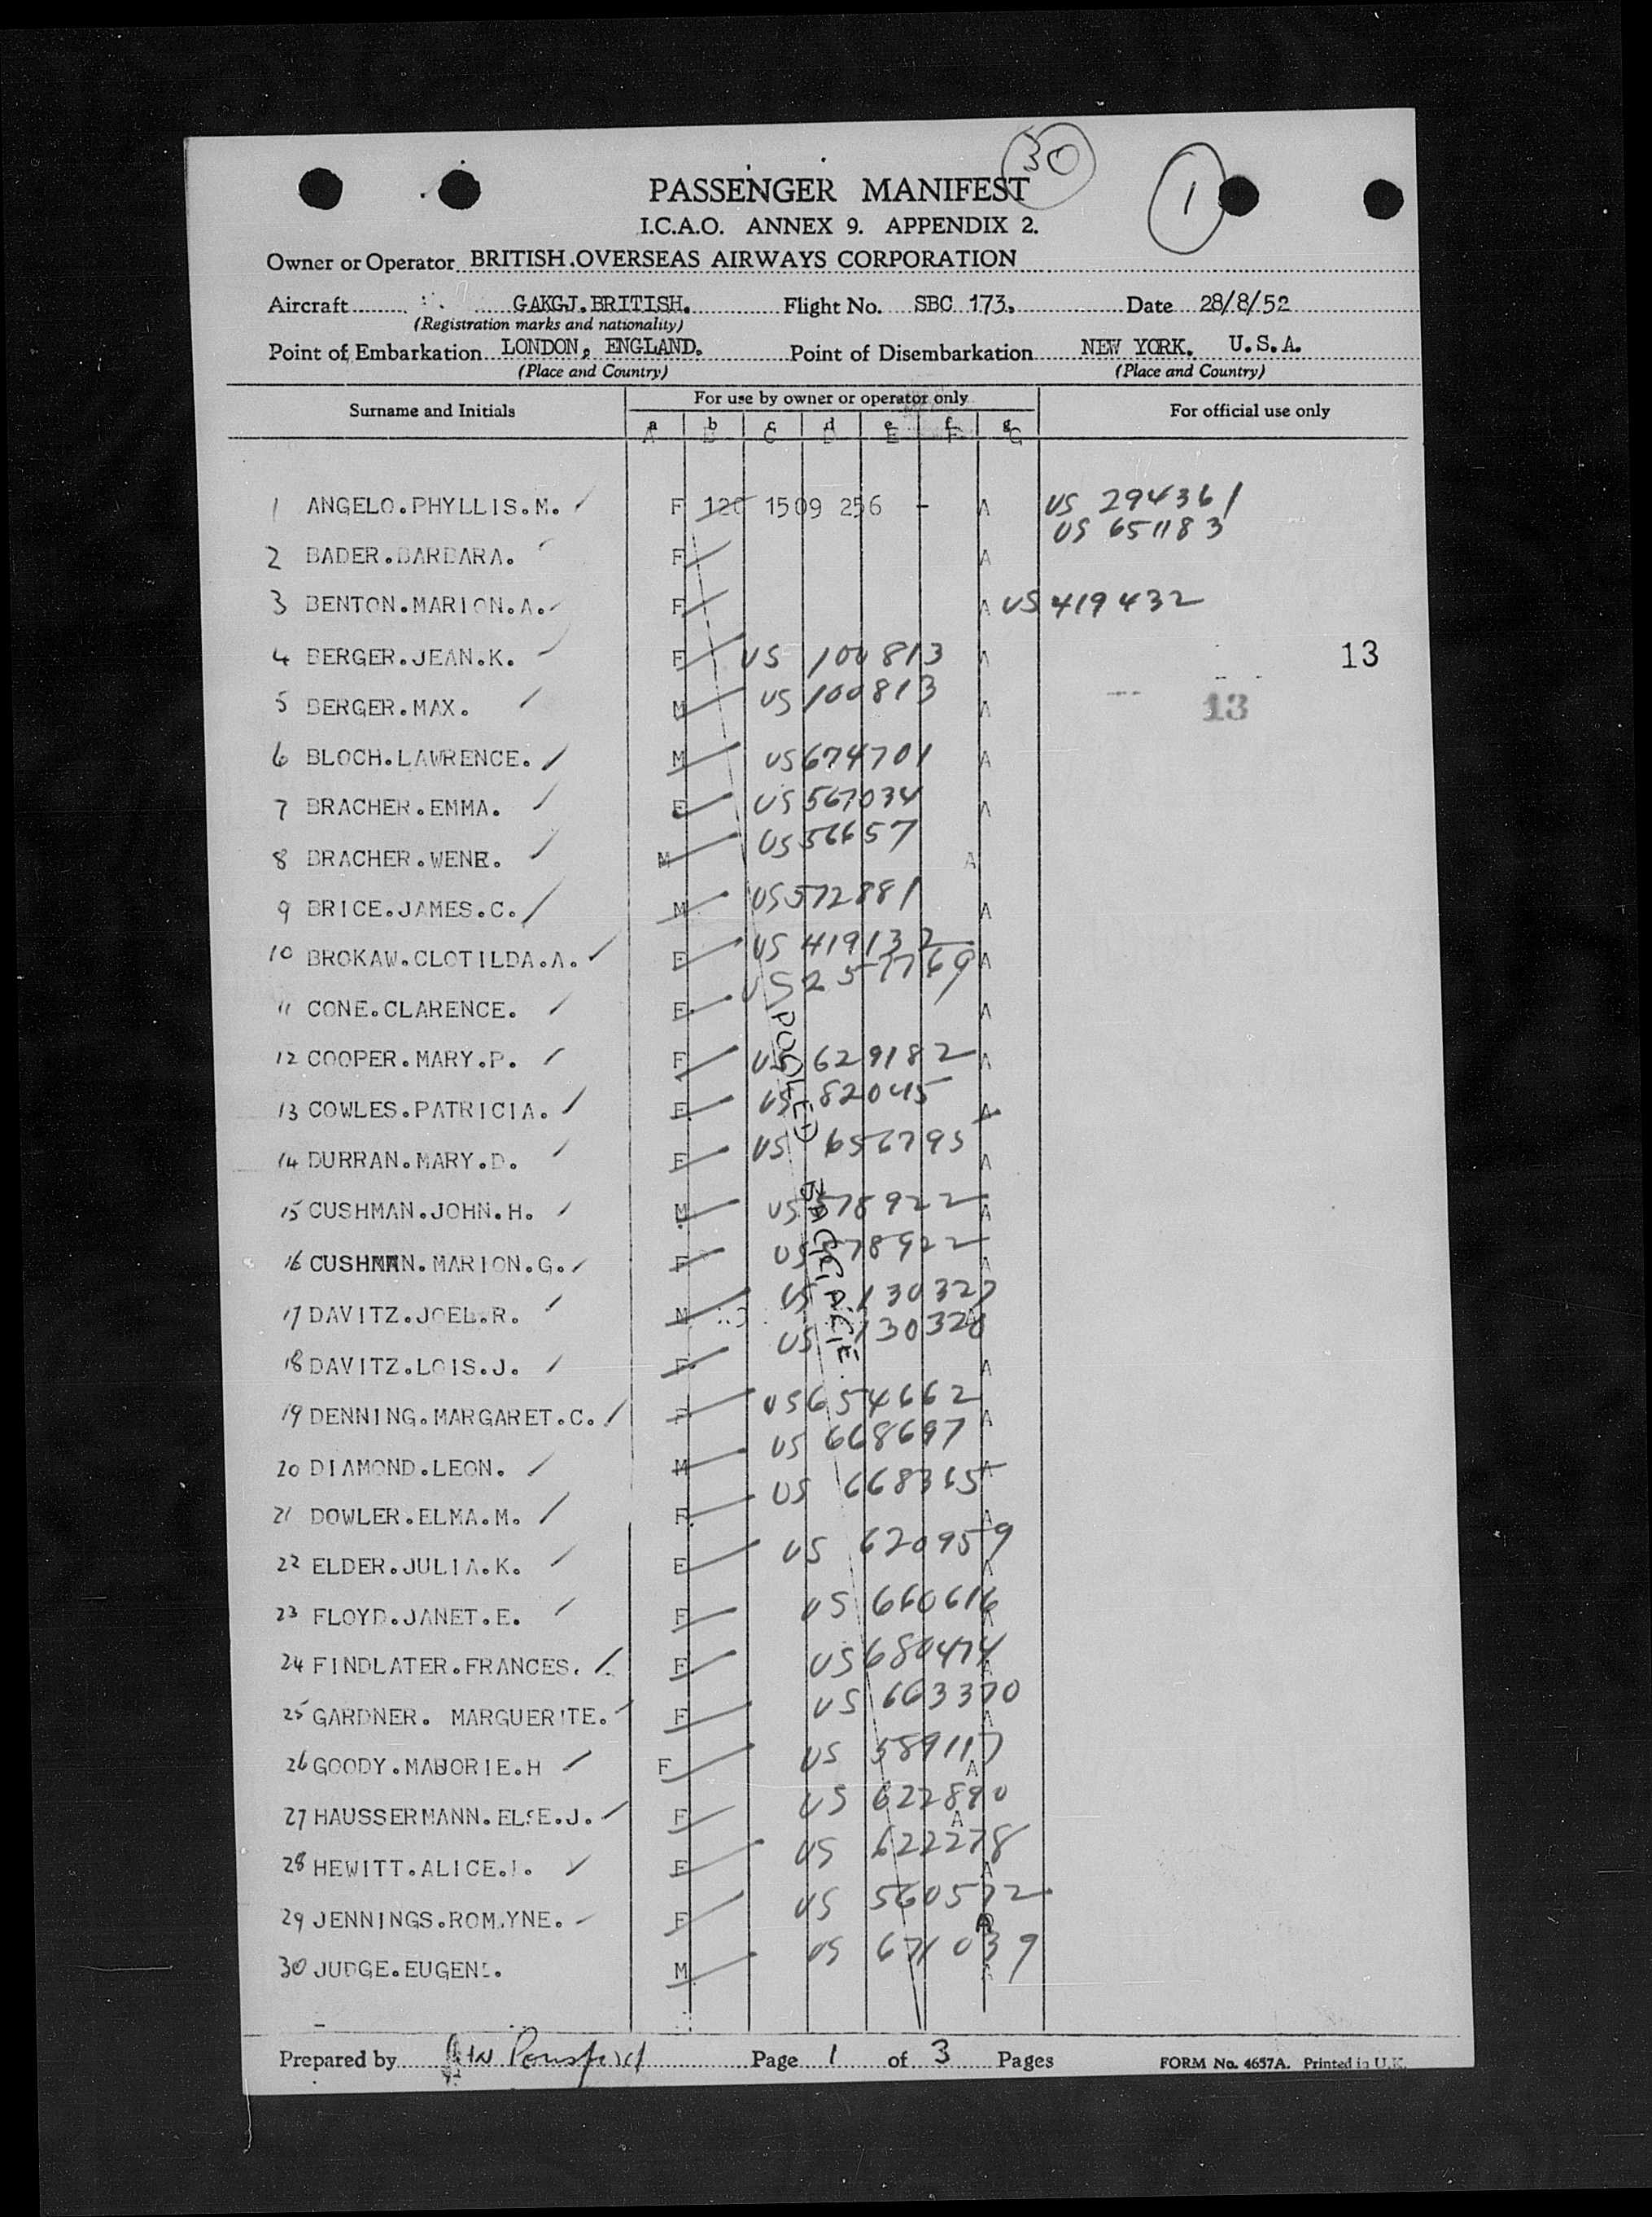 30
1
PASSENGER MANIFEST
I.C.A.O. ANNEX 9. APPENDIX 2.
Owner or Operator BRITISH.OVERSEAS AIRWAYS CORPORATION
Aircraft GAKGJ.BRITISH. Flight No. SBC 173. Date 28/8/52
(Registration marks and nationality)
Point of Embarkation LONDON, ENGLAND. Point of Disembarkation NEW YORK. U.S.A.
(Place and Country) (Place and Country)
Surname and Initials For use by owner or operator only For official use only
a b c d e f g
A B C D E F G
1 ANGELO.PHYLLIS.M. F 120 1509 256 - A US 294361
US 651183
2 BADER.BARBARA. F A
3 BENTON.MARION.A. F A US 419432
4 BERGER.JEAN.K. F US 100813 A 13
5 BERGER.MAX. M US 100813 A 13
6 BLOCH.LAWRENCE. M US 674701 A
7 BRACHER.EMMA. F US 567034 A
8 BRACHER.WENE. M US 56657 A
9 BRICE.JAMES.C. M US 572881 A
10 BROKAW.CLOTILDA.A. F US 419132 A
US 257769
11 CONE.CLARENCE. F A
12 COOPER.MARY.P. F US 629182 A
13 COWLES.PATRICIA. F US 82045 A
14 DURRAN.MARY.D. F US 656795 A
15 CUSHMAN.JOHN.H. M US 578922 A
16 CUSHMAN.MARION.G. F US 578922 A
17 DAVITZ.JOEL.R. M US 130327 A
US 130328
18 DAVITZ.LOIS.J. F A
19 DENNING.MARGARET.C. F US 654662 A
20 DIAMOND.LEON. M US 668697 A
21 DOWLER.ELMA.M. F US 668365 A
22 ELDER.JULIA.K. F US 620959 A
23 FLOYD.JANET.E. F US 660616 A
24 FINDLATER.FRANCES. F US 680474 A
25 GARDNER. MARGUERITE. F US 663370 A
26 GOODY.MAJORIE.H F US 589117 A
27 HAUSSERMANN.ELSE.J. F US 622890 A
28 HEWITT.ALICE.I. F US 622278 A
29 JENNINGS.ROMAYNE. F US 560572 A
30 JUDGE.EUGENE. M US 671039 A
POOLED BAGGAGE.
Prepared by Ponsford Page 1 of 3 Pages FORM No. 4657A. Printed in U.K.